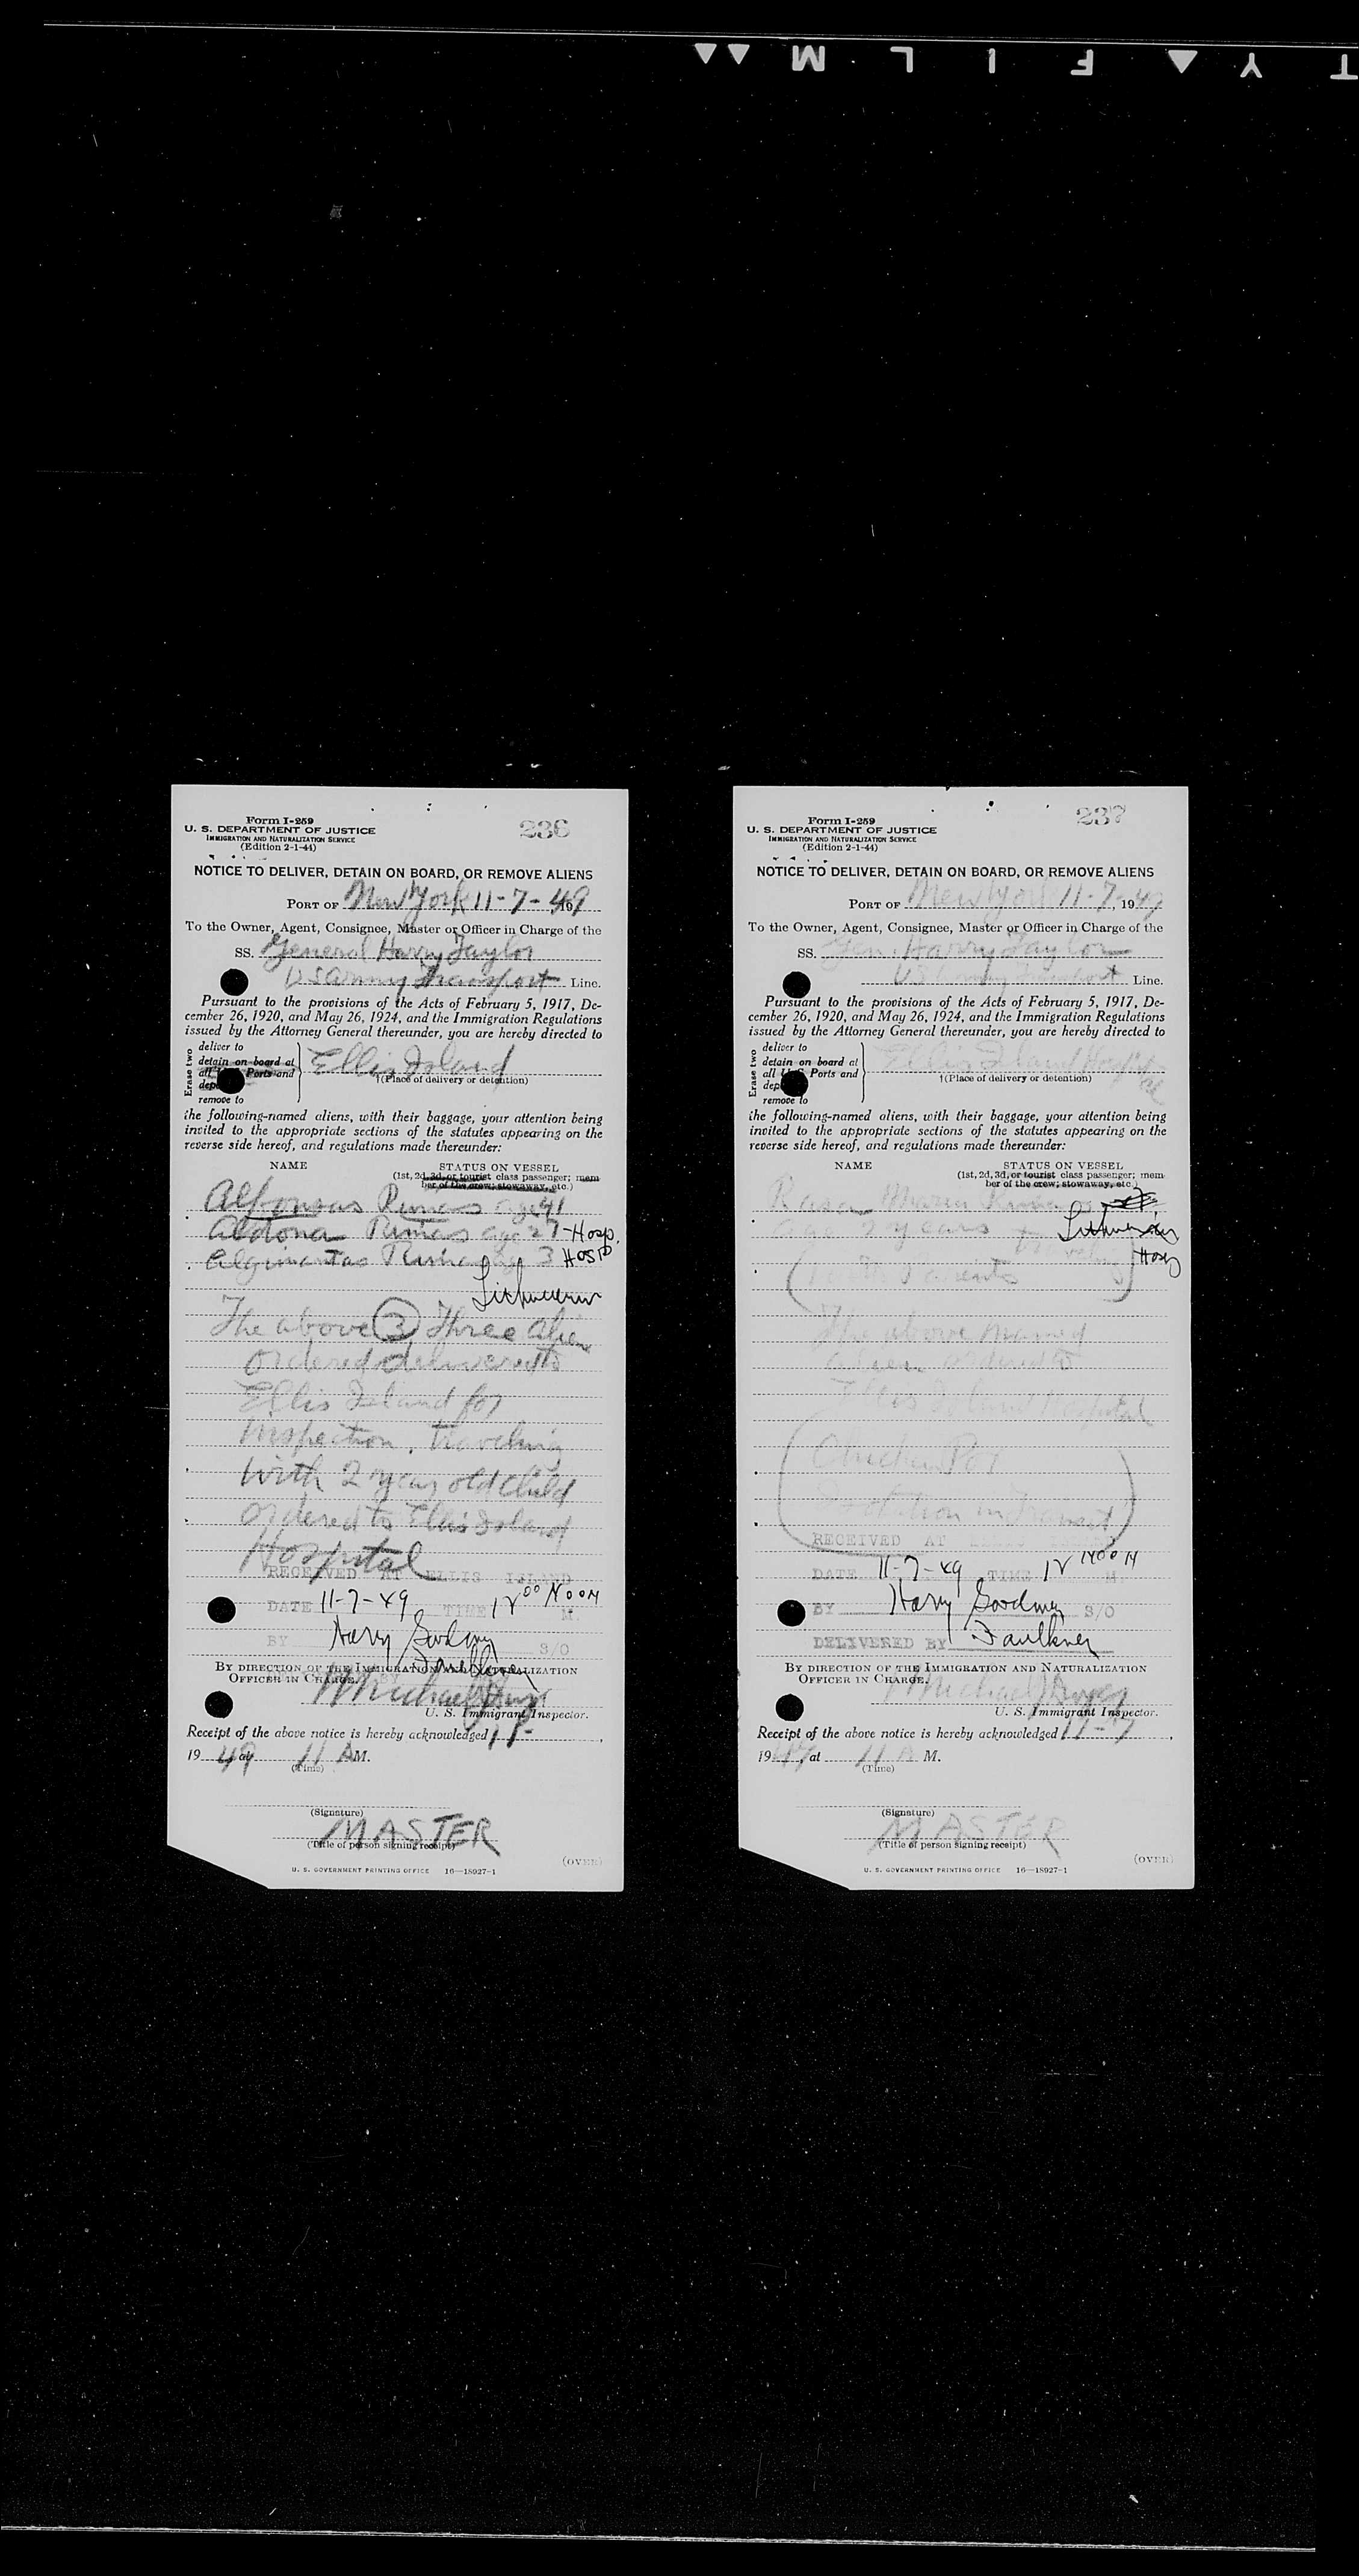 SAFETY FILM
Form I-259
U. S. DEPARTMENT OF JUSTICE
IMMIGRATION AND NATURALIZATION SERVICE
(Edition 2-1-44)
236
NOTICE TO DELIVER, DETAIN ON BOARD, OR REMOVE ALIENS
PORT OF New York 11-7-49
To the Owner, Agent, Consignee, Master or Officer in Charge of the
SS. General Harry Taylor
US Army Transport Line.
Pursuant to the provisions of the Acts of February 5, 1917, De-
cember 26, 1920, and May 26, 1924, and the Immigration Regulations
issued by the Attorney General thereunder, you are hereby directed to
Erase two
deliver to
detain on board at
all Ports and
remove to
Ellis Island
†(Place of delivery or detention)
the following-named aliens, with their baggage, your attention being
invited to the appropriate sections of the statutes appearing on the
reverse side hereof, and regulations made thereunder:
NAME STATUS ON VESSEL
(1st, 2d, 3d, or tourist class passenger; mem
ber of the crew; stowaway, etc.)
Alfonsas Rimas age 41
Aldona Rimas age 27 - Hosp.
Algimantas Rimas age 3 Hosp
Lithuanian
The above (3) Three alien
ordered delivered to
Ellis Island for
inspection. Traveling
with 2 year old child
ordered to Ellis Island
Hospital
RECEIVED AT ELLIS ISLAND
DATE 11-7-49 TIME 12 00 NOON M.
BY Harry Goodman S/O
Faulkner
BY DIRECTION OF THE IMMIGRATION AND NATURALIZATION
OFFICER IN CHARGE.
Michael
U. S. Immigrant Inspector.
Receipt of the above notice is hereby acknowledged 11-
19 49 at 11 A M.
(Time)
(Signature)
MASTER
(Title of person signing receipt)
(OVER)
U. S. GOVERNMENT PRINTING OFFICE 16—18927-1
Form I-259
U. S. DEPARTMENT OF JUSTICE
IMMIGRATION AND NATURALIZATION SERVICE
(Edition 2-1-44)
237
NOTICE TO DELIVER, DETAIN ON BOARD, OR REMOVE ALIENS
PORT OF New York 11-7, 1949
To the Owner, Agent, Consignee, Master or Officer in Charge of the
SS. Gen. Harry Taylor
US Army Transport Line.
Pursuant to the provisions of the Acts of February 5, 1917, De-
cember 26, 1920, and May 26, 1924, and the Immigration Regulations
issued by the Attorney General thereunder, you are hereby directed to
Erase two
deliver to
detain on board at
all Ports and
remove to
Ellis Island Hospital
†(Place of delivery or detention)
the following-named aliens, with their baggage, your attention being
invited to the appropriate sections of the statutes appearing on the
reverse side hereof, and regulations made thereunder:
NAME STATUS ON VESSEL
(1st, 2d, 3d, or tourist class passenger; mem
ber of the crew; stowaway, etc.)
Rasa Maria Rimas
age 2 years Lithuanian
Hosp
(with Parents)
The above named
alien ordered to
Ellis Island Hospital
(Chicken Pox
Isolation in Transit)
RECEIVED AT ELLIS ISLAND
DATE 11-7-49 TIME 12 NOON M
BY Harry Goodman S/O
DELIVERED BY Faulkner
BY DIRECTION OF THE IMMIGRATION AND NATURALIZATION
OFFICER IN CHARGE.
Michael
U. S. Immigrant Inspector.
Receipt of the above notice is hereby acknowledged 11-7,
1949, at 11 A M.
(Time)
(Signature)
MASTER
(Title of person signing receipt)
(OVER)
U. S. GOVERNMENT PRINTING OFFICE 16—18927-1